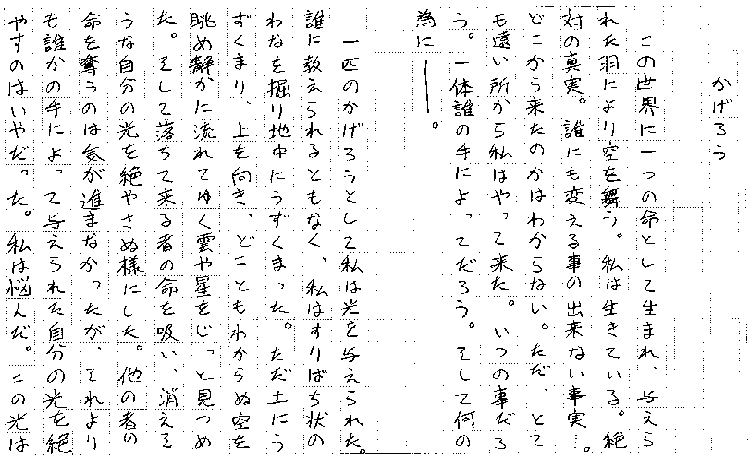 かげろう
この世界に一つの命として生まれ、与えら
れた羽により空を舞う。私は生きている。絶
対の真実。誰にも変える事の出来ない事実…。
どこから来たのかはわからない。ただ、とて
も遠い所から私はやって来た。いつの事だろ
う。一体誰の手によってだろう。そして何の
為に――。
一匹のかげろうとして私は光を与えられた。
誰に教えられるともなく、私はすりばち状の
わなを掘り地中にうずくまった。ただ土にう
ずくまり、上を向き、どこともわからぬ空を
眺め静かに流れてゆく雲や星をじっと見つめ
た。そして落ちて来る者の命を吸い、消えそ
うな自分の光を絶やさぬ様にした。他の者の
命を奪うのは気が進まなかったが、それより
も誰かの手によって与えられた自分の光を絶
やすのはいやだった。私は悩んだ。この光は